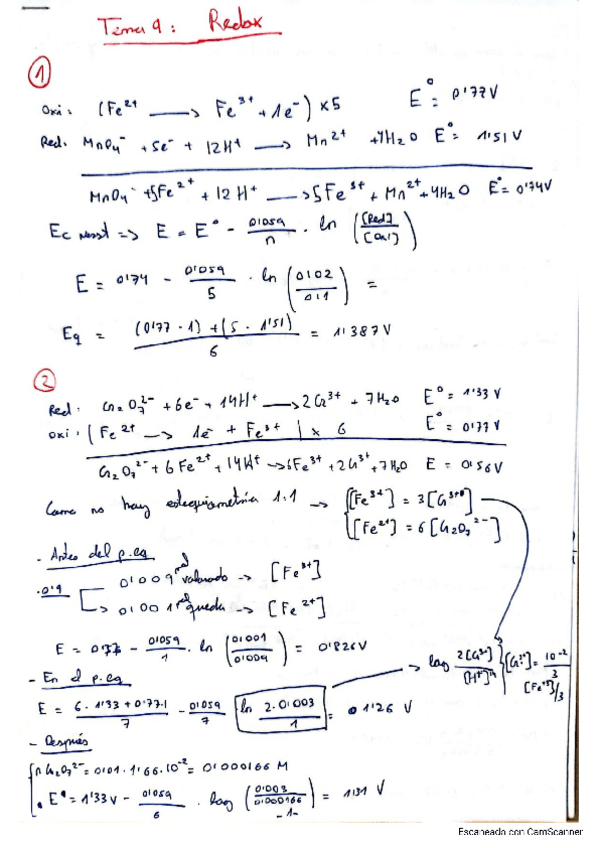 Tema 9: Redox
①
Oxi: (Fe²⁺ ⟶ Fe³⁺ + 1e⁻) x5 E° = 0'77V
Red. MnO₄⁻ + 5e⁻ + 12H⁺ ⟶ Mn²⁺ + 4H₂O E° = 1'51 V
MnO₄⁻ + 5Fe²⁺ + 12H⁺ ⟶ 5Fe³⁺ + Mn²⁺ + 4H₂O E° = 0'74V
Ec Nernst ⇒ E = E° - 0'059/n · ln ([Red]/[Oxi])
E = 0'74 - 0'059/5 · ln (0'02/0'1) =
Eq = (0'77 · 1) + (5 · 1'51) / 6 = 1'387V
②
Red: Cr₂O₇²⁻ + 6e⁻ + 14H⁺ ⟶ 2Cr³⁺ + 7H₂O E° = 1'33 V
Oxi: (Fe²⁺ ⟶ 1e⁻ + Fe³⁺) x 6 E° = 0'77V
Cr₂O₇²⁻ + 6Fe²⁺ + 14H⁺ ⟶ 6Fe³⁺ + 2Cr³⁺ + 7H₂O E = 0'56V
Como no hay estequiometría 1:1 ⟶ [Fe³⁺] = 3[Cr³⁺]
[Fe²⁺] = 6[Cr₂O₇²⁻]
- Antes del p.eq
·0'9 0'009 valorado → [Fe³⁺]
0'001 queda → [Fe²⁺]
E = 0'77 - 0'059/1 · ln (0'001/0'009) = 0'826V
- En el p.eq → log 2[Cr³⁺]/[H⁺]¹⁴ [Cr³⁺] = 10⁻²/3
[Fe³⁺]/3
E = 6·1'33 + 0'77·1 / 7 - 0'059/7 ln 2·0'003/1 = 1'26 V
- Después
n Cr₂O₇²⁻ = 0'01 · 1'66·10⁻² = 0'000166 M
E° = 1'33V - 0'059/6 · log (0'003/0'000166) = 1'31 V
-1-
Escaneado con CamScanner